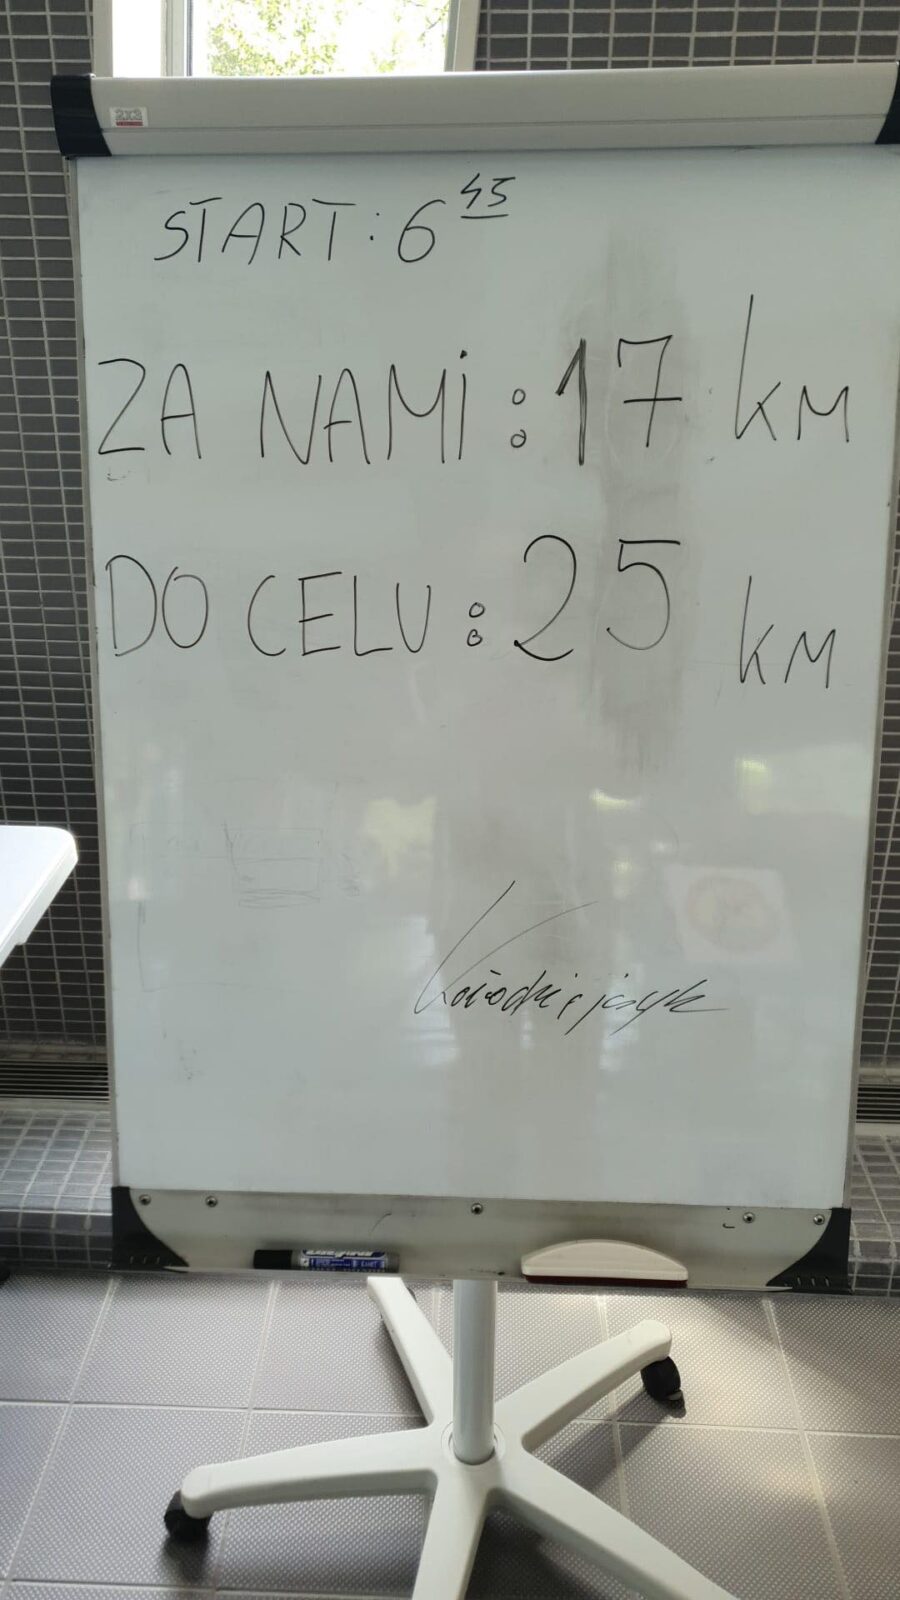 2x3
START: 6 45
ZA NAMI: 17 km
DO CELU: 25 km